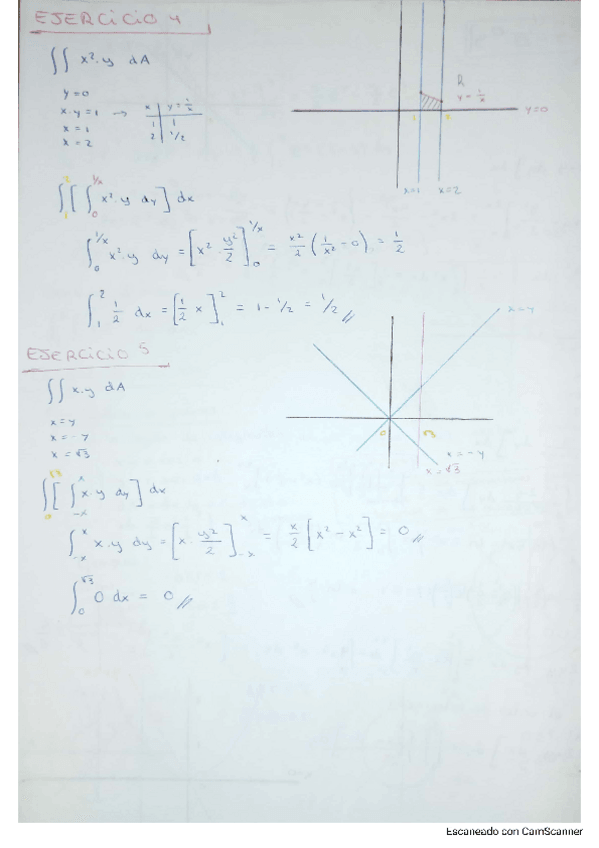 EJERCICIO 4
∬ x²·y dA
y=0
x·y=1 → x | y=1/x
x=1 1 | 1
x=2 2 | 1/2
R
y=1/x
y=0
1 2
x=1 x=2
∫₁² [ ∫₀^(1/x) x²·y dy ] dx
∫₀^(1/x) x²·y dy = [ x²·y²/2 ]₀^(1/x) = x²/2 ( 1/x² - 0 ) = 1/2
∫₁² 1/2 dx = [ 1/2 x ]₁² = 1 - 1/2 = 1/2 //
EJERCICIO 5
x=y
∬ x·y dA
x=y
x=-y
x=√3
0 √3
x=-y
x=√3
∫₀^(√3) [ ∫₋ₓ^x x·y dy ] dx
∫₋ₓ^x x·y dy = [ x·y²/2 ]₋ₓ^x = x/2 [ x² - x² ] = 0 //
∫₀^(√3) 0 dx = 0 //
Escaneado con CamScanner